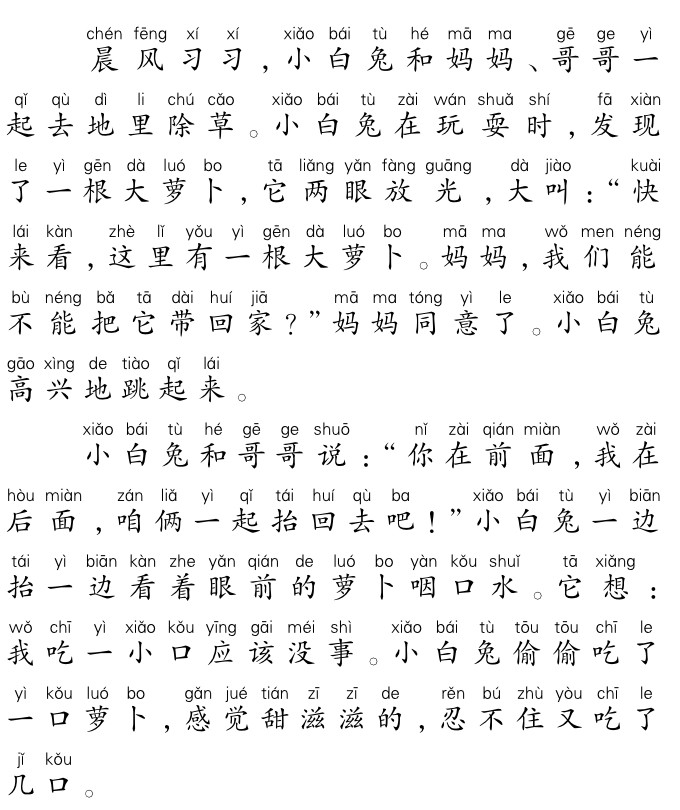 chén fēng xí xí xiǎo bái tù hé mā ma gē ge yì
晨风习习，小白兔和妈妈、哥哥一
qǐ qù dì li chú cǎo xiǎo bái tù zài wán shuǎ shí fā xiàn
起去地里除草。小白兔在玩耍时，发现
le yì gēn dà luó bo tā liǎng yǎn fàng guāng dà jiào kuài
了一根大萝卜，它两眼放光，大叫：“快
lái kàn zhè lǐ yǒu yì gēn dà luó bo mā ma wǒ men néng
来看，这里有一根大萝卜。妈妈，我们能
bù néng bǎ tā dài huí jiā mā ma tóng yì le xiǎo bái tù
不能把它带回家？”妈妈同意了。小白兔
gāo xìng de tiào qǐ lái
高兴地跳起来。
xiǎo bái tù hé gē ge shuō nǐ zài qián miàn wǒ zài
小白兔和哥哥说：“你在前面，我在
hòu miàn zán liǎ yì qǐ tái huí qù ba xiǎo bái tù yì biān
后面，咱俩一起抬回去吧！”小白兔一边
tái yì biān kàn zhe yǎn qián de luó bo yàn kǒu shuǐ tā xiǎng
抬一边看着眼前的萝卜咽口水。它想：
wǒ chī yì xiǎo kǒu yīng gāi méi shì xiǎo bái tù tōu tōu chī le
我吃一小口应该没事。小白兔偷偷吃了
yì kǒu luó bo gǎn jué tián zī zī de rěn bú zhù yòu chī le
一口萝卜，感觉甜滋滋的，忍不住又吃了
jǐ kǒu
几口。